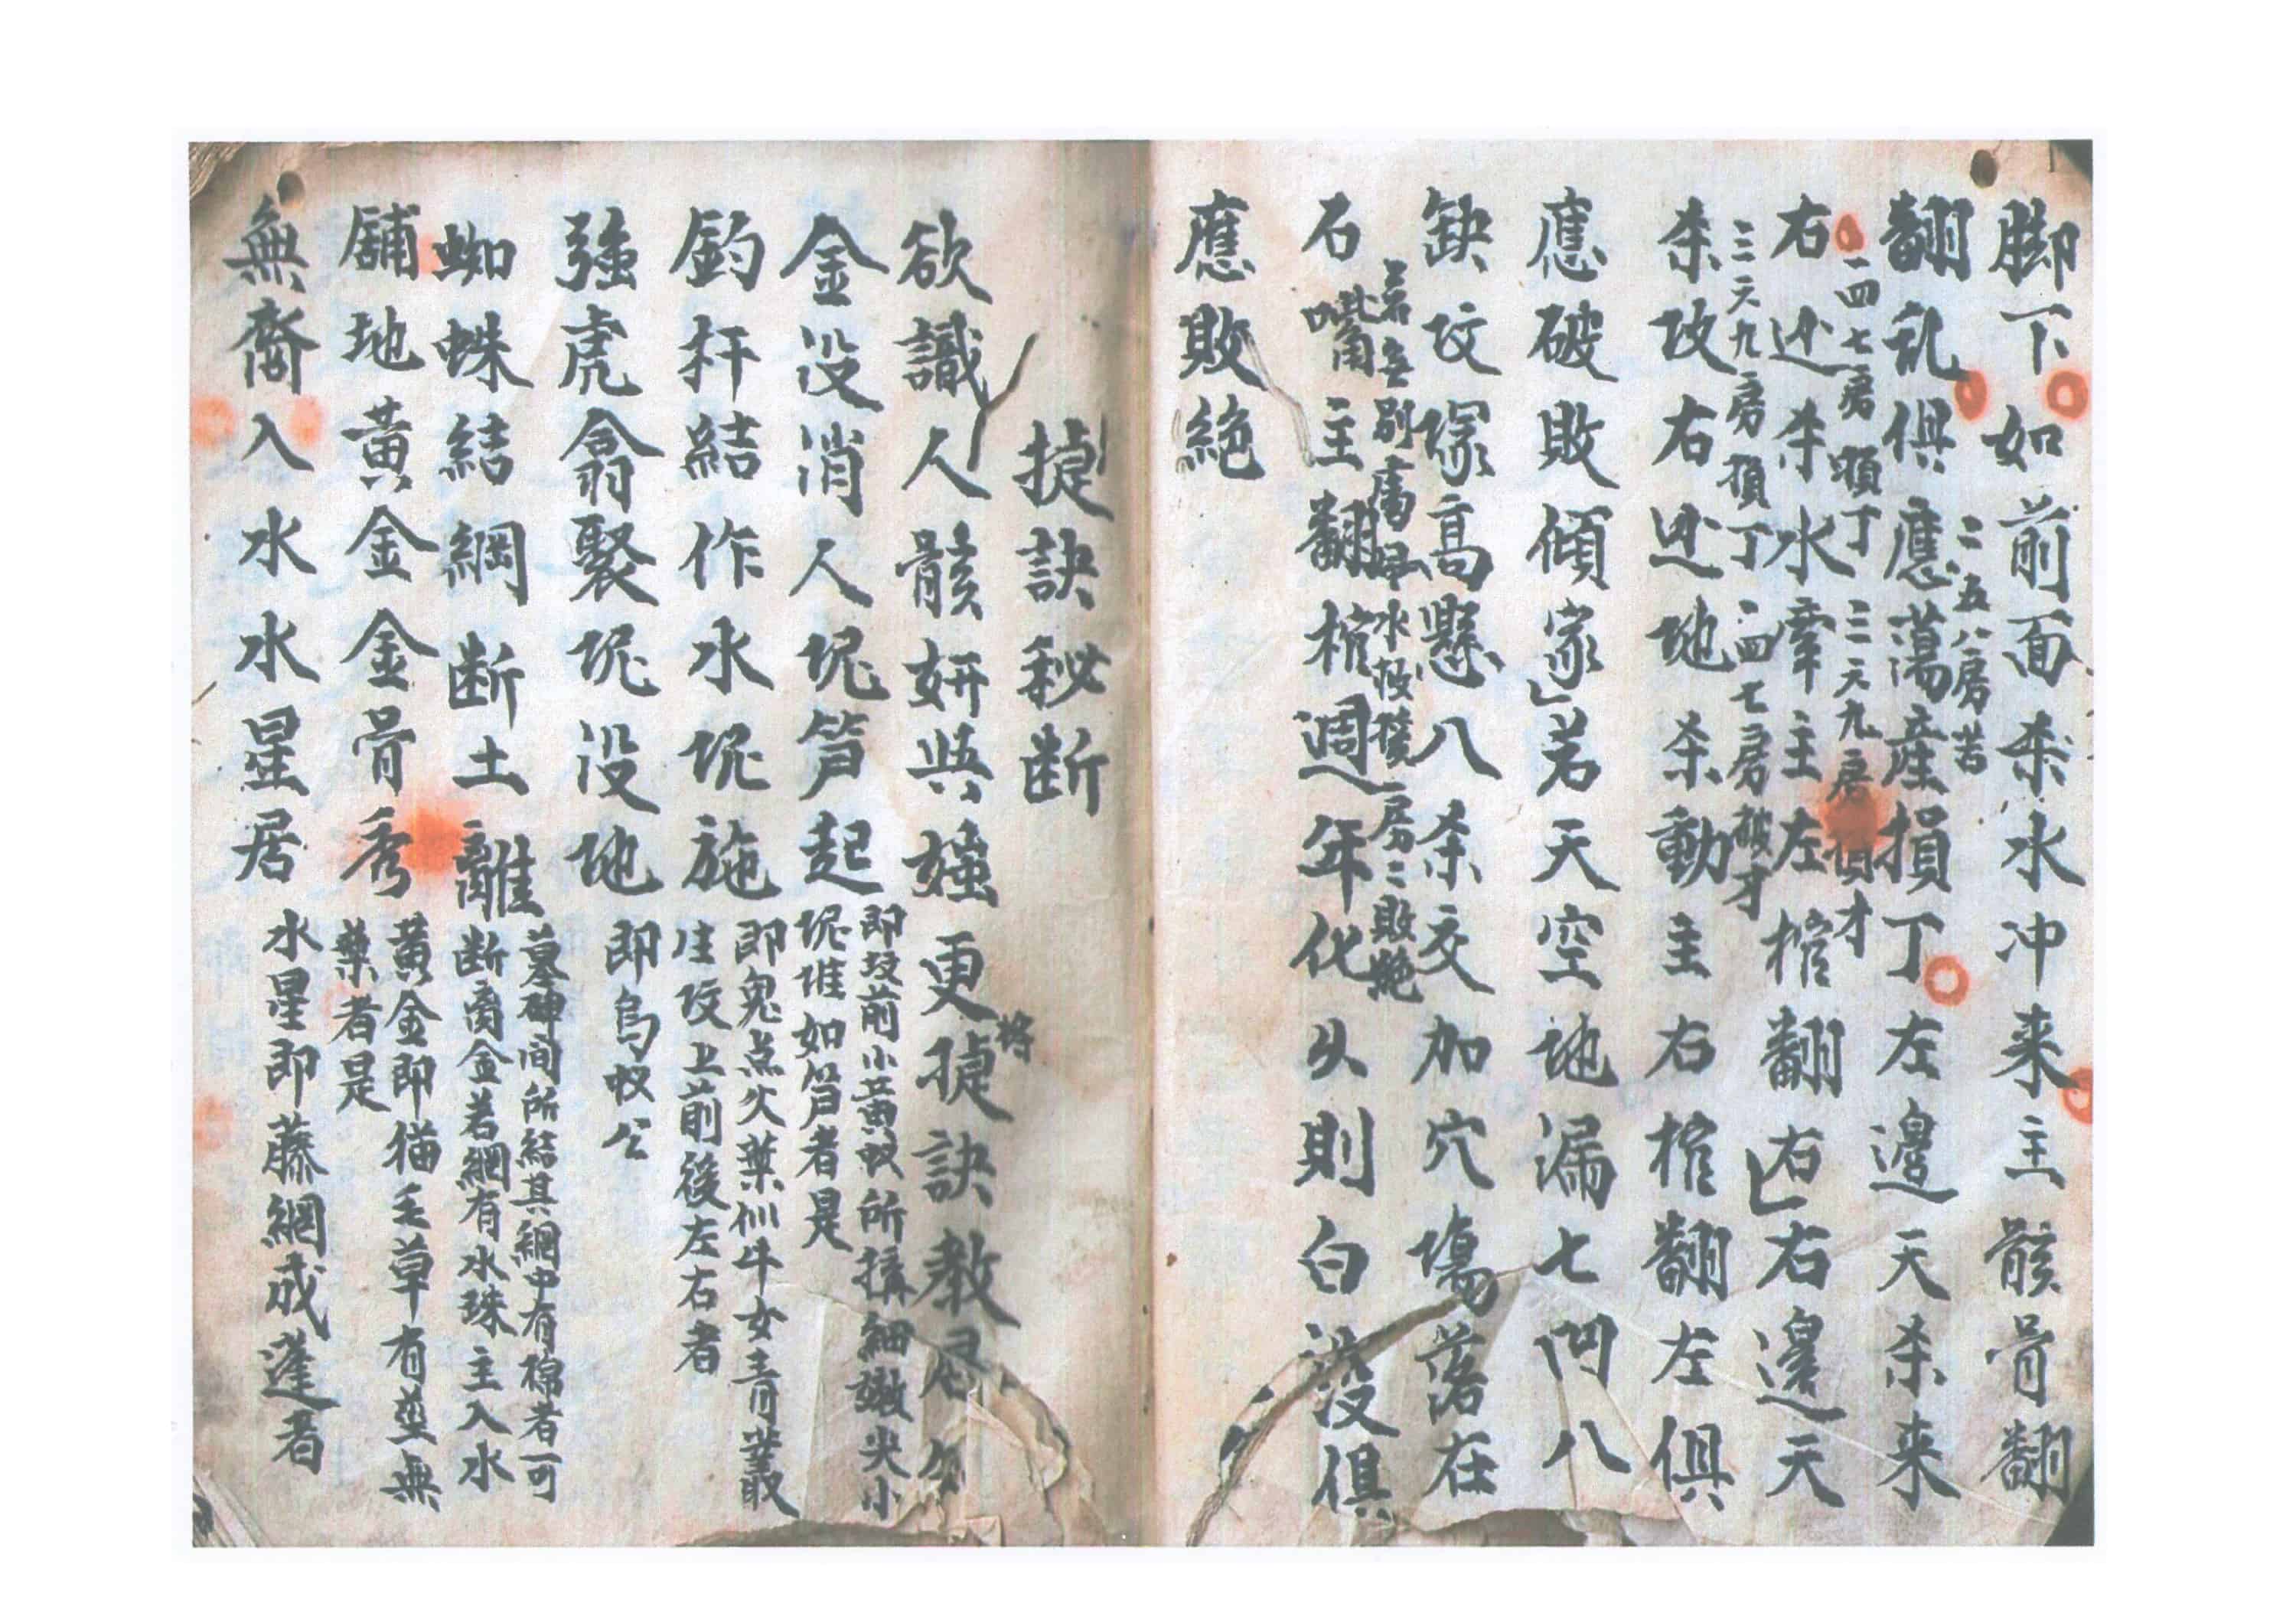 脚下如前面杀水冲来主骸骨翻
二五八房苦
翻乱俱應蕩產損丁左邊天杀来
一四七房損丁三六九房損才
右边杀水牽主左棺翻右右邊天
三六九房損丁一四七房破才
杀攻右边地杀動主右棺翻左俱
應破敗傾家若天空地漏七門八
缺坟塚高懸八杀交加穴塲落在
若無別房歸水救殯一房二敗絶
石嘴主翻棺週年化久則白没俱
應敗絶
捷訣秘断
欲識人骸妍與媸更捷訣教君知
将
金没消人坭笋起
即坟前小黄蚁所擁細嫩尖小
坭堆如笋者是
釣杆結作水坭施
即鬼点火葉似牛女青叢
生坟上前後左右者
強虎翕聚坭没地
即烏蚁公
蜘蛛結網断土離
墓碑间所結其網中有棉者可
断离金若網有水珠主入水
舖地黄金金骨秀
黄金即猫毛草有莖無
葉者是
無裔入水水星居
水星即藤網成蓬者